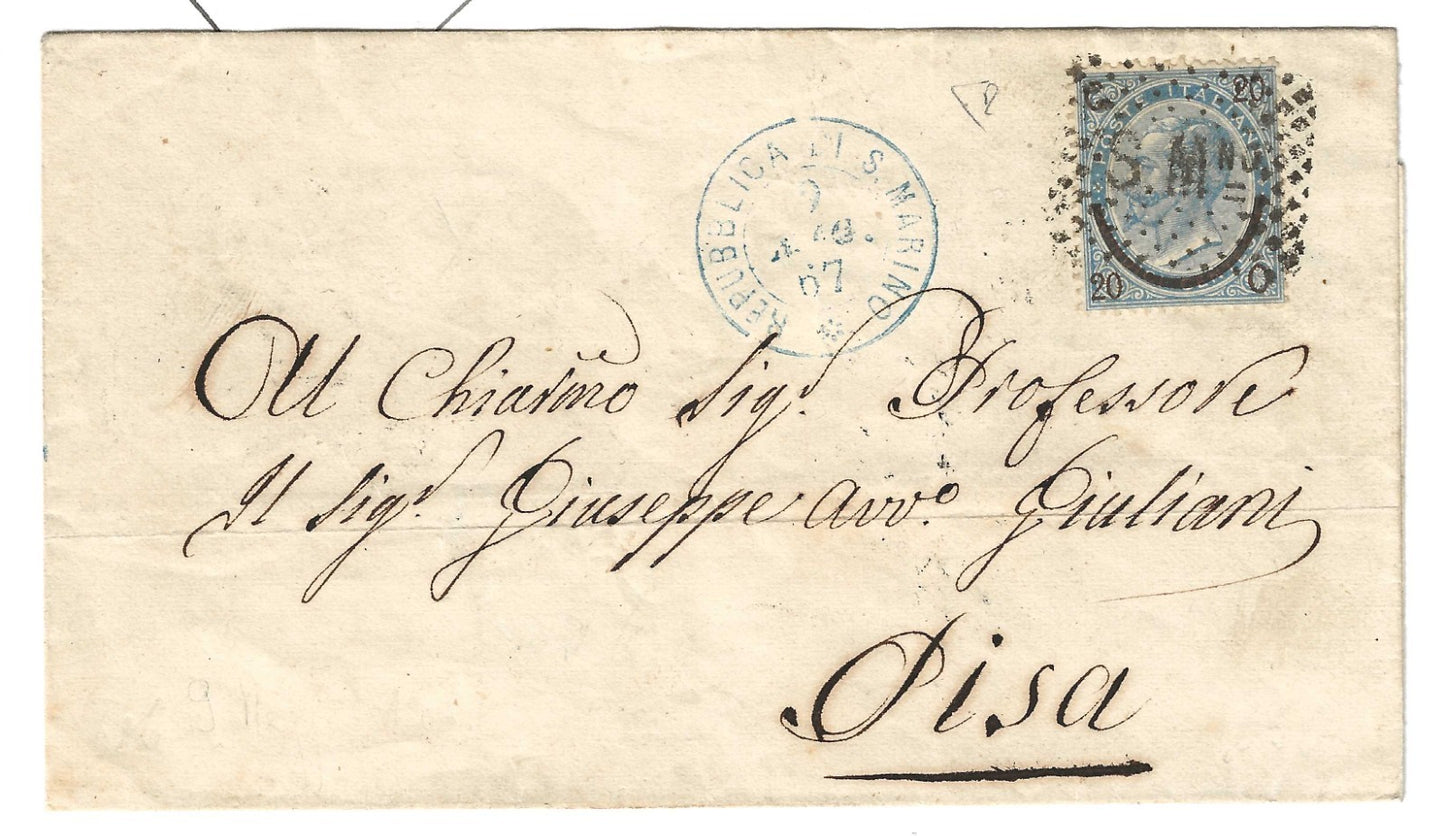 REPUBBLICA DI S. MARINO
67
POSTE ITALIANE
20
20
Al Chiarmo Sigr. Professore
Il Sigr. Giuseppe Avvo. Giuliani
Pisa